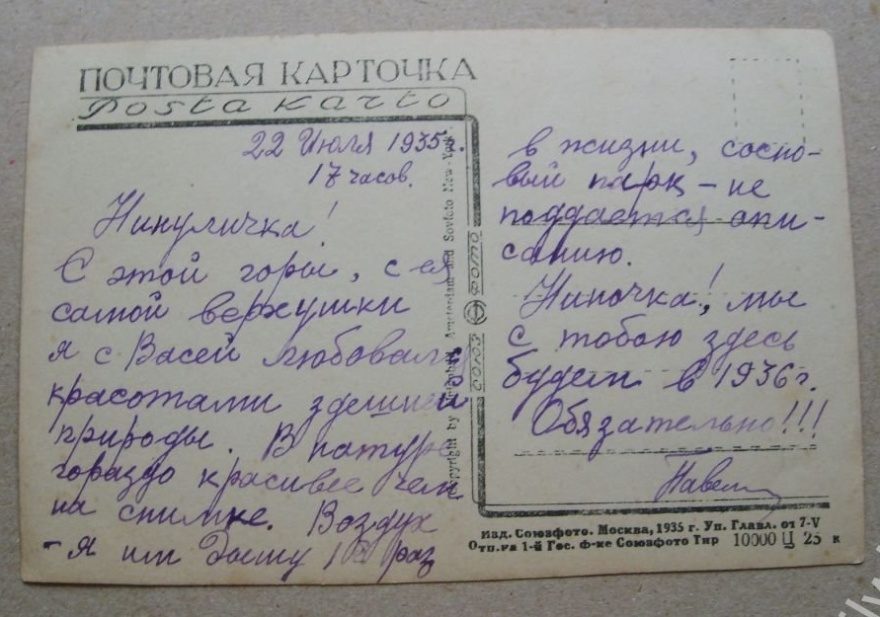 ПОЧТОВАЯ КАРТОЧКА
Posta karto
22 Июля 1935 г.
17 часов.
Нинуличка!
С этой горы, с её
самой верхушки
я с Васей любовался
красотами здешней
природы. В натуре
гораздо красивее чем
на снимке. Воздух
- я им дышу 1й раз
в жизни, сосно-
вый парк - не
поддается опи-
санию.
Ниночка!, мы
с тобою здесь
будем в 1936 г.
Обязательно!!!
Павел
Copyright by Amsterdam and Sovfoto New-York
СОЮЗ ФОТО
Изд. Союзфото. Москва, 1935 г. Уп. Главл. от 7-V
Отп. на 1-й Гос. ф-ке Союзфото Тир 10000 Ц 25 к